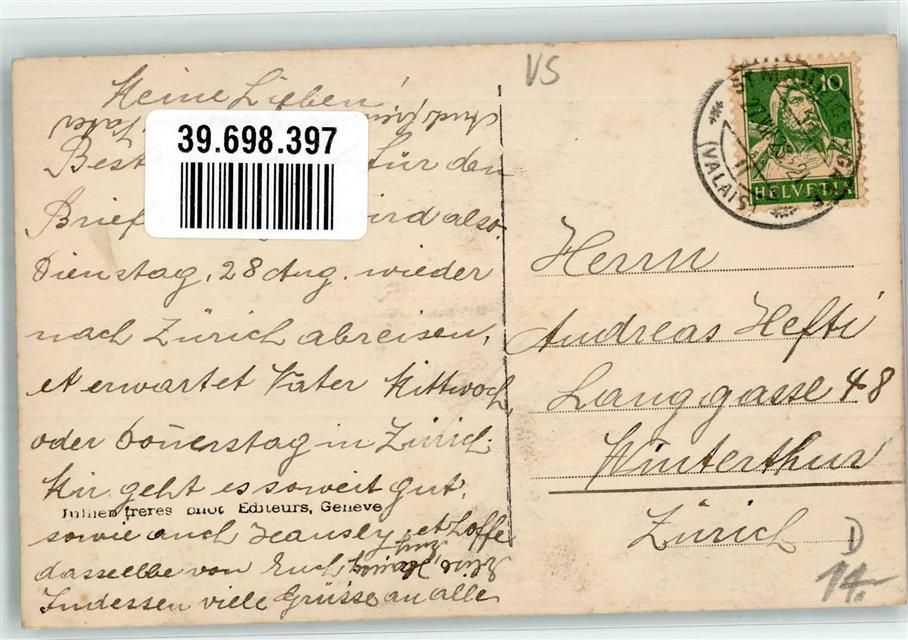 VS
Meine Lieben!
39.698.397
Best für den
Brief wird also
Dienstag, 28 Aug. wieder
nach Zürich abreisen,
et erwartet Vater Mittwoch,
oder Donerstag in Zürich.
Mir geht es soweit gut,
Jullien freres phot Editeurs, Geneve
sowie auch Hansly, et hoffe
dasselbe von Euch
Indessen viele Grüsse an alle
10
HELVETIA
(VALAIS)
Herrn
Andreas Hefti
Langgasse 48
Winterthur
Zürich
D
14.-